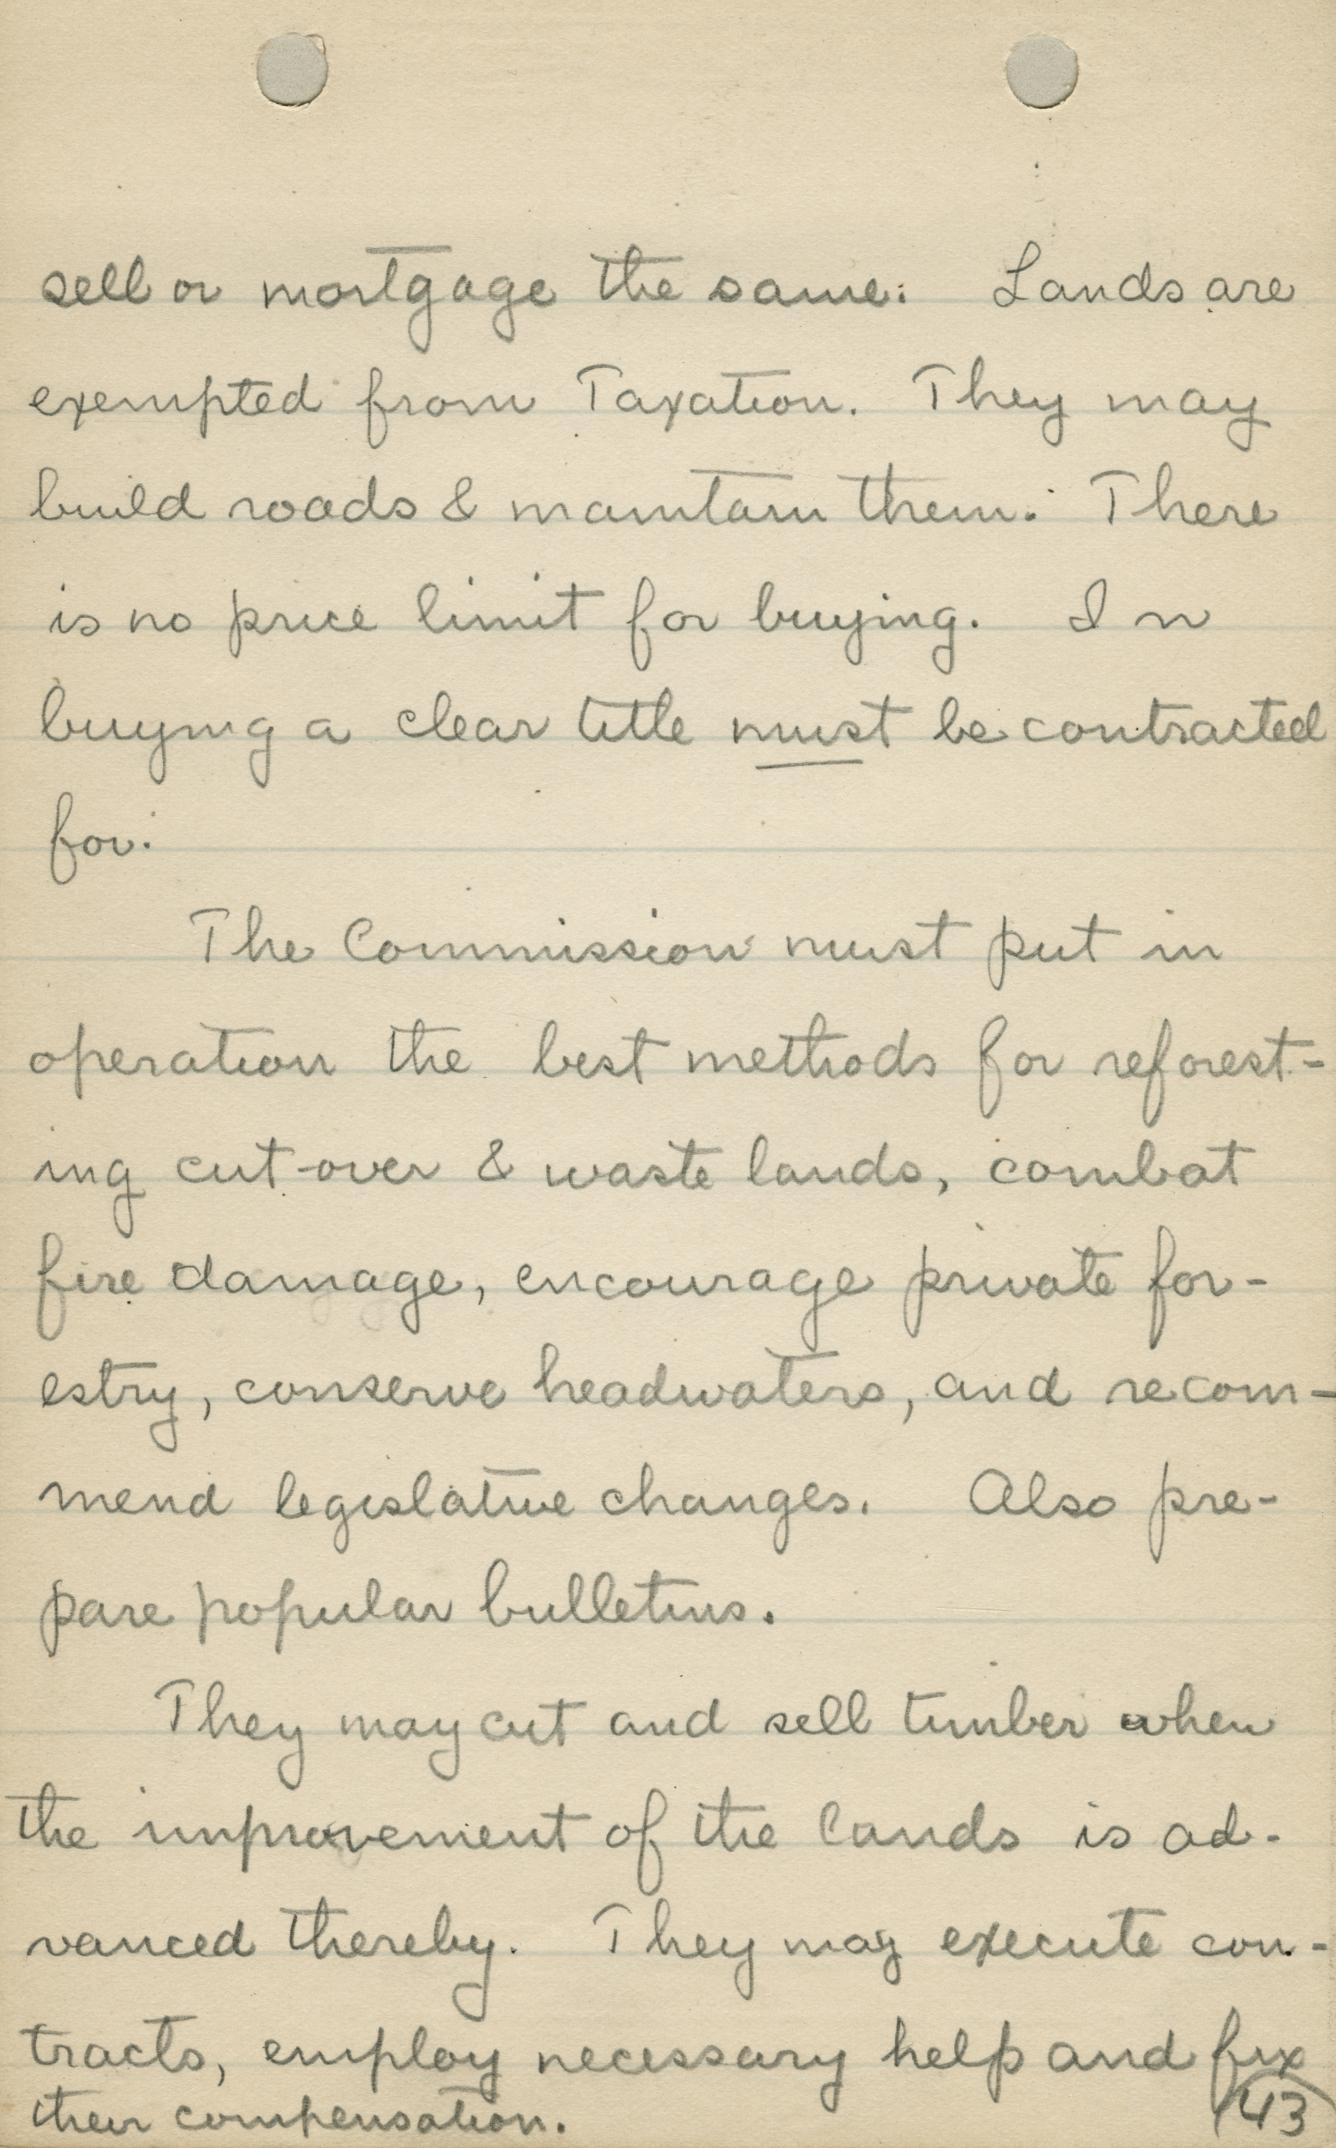 sell or mortgage the same. Lands are
exempted from Taxation. They may
build roads & maintain them. There
is no price limit for buying. In
buying a clear title must be contracted
for.
The Commission must put in
operation the best methods for reforest-
ing cut-over & waste lands, combat
fire damage, encourage private for-
estry, conserve headwaters, and recom-
mend legislative changes. Also pre-
pare popular bulletins.
They may cut and sell timber when
the improvement of the lands is ad-
vanced thereby. They may execute con-
tracts, employ necessary help and fix
their compensation.
43